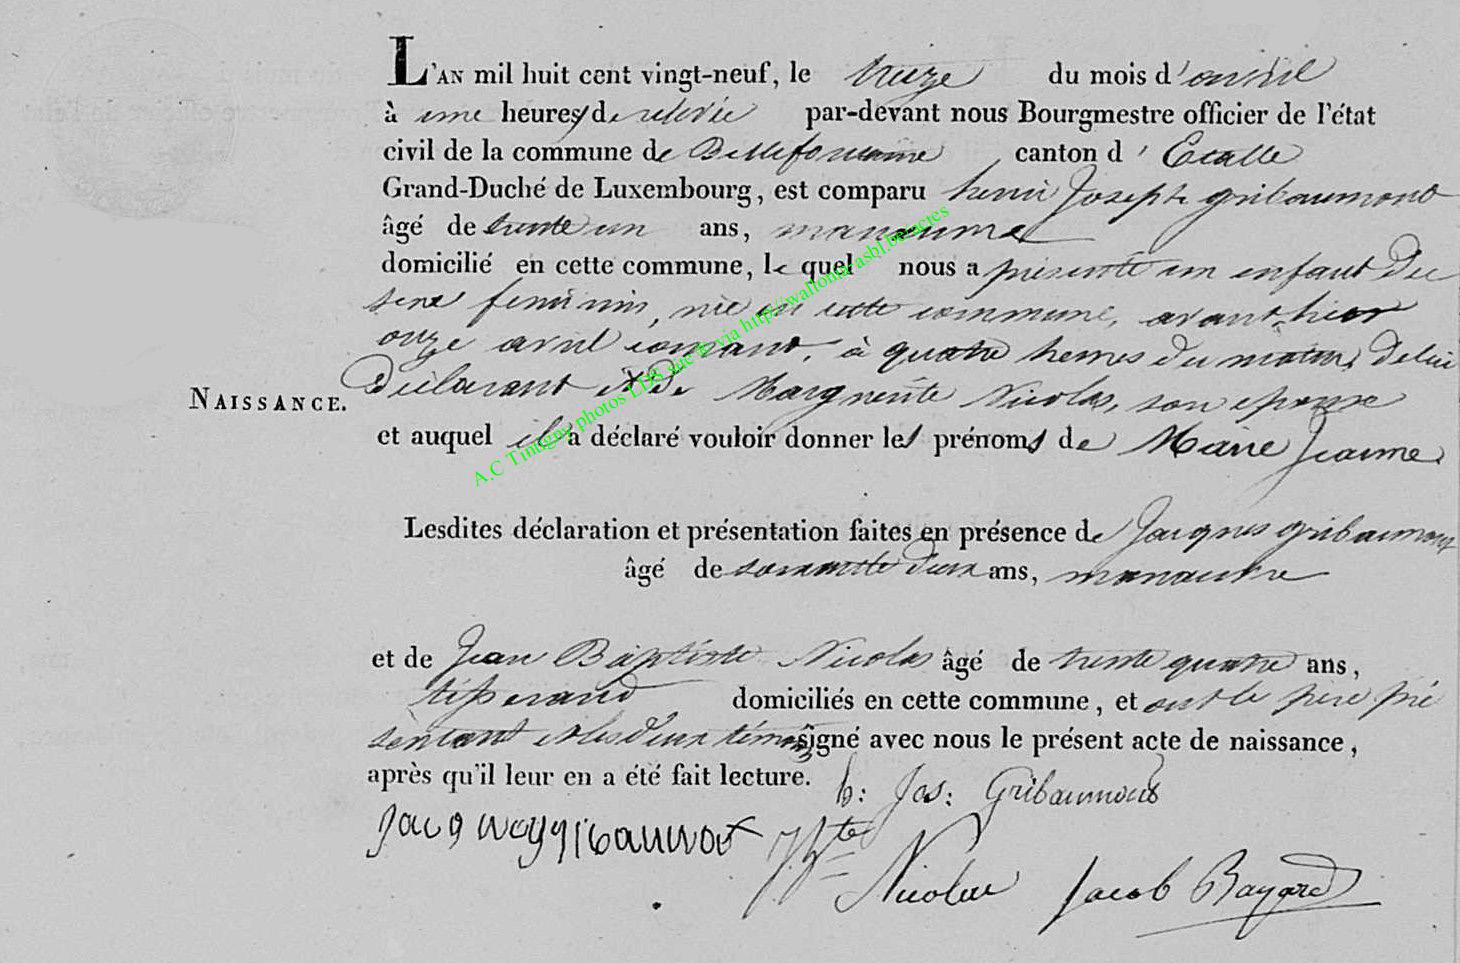 L'AN mil huit cent vingt-neuf, le treize du mois d'avril
à une heures de relevée par-devant nous Bourgmestre officier de l'état
civil de la commune de Bellefontaine canton d'Etalle
Grand-Duché de Luxembourg, est comparu henri Joseph gribaumont
âgé de trente un ans, manœuvre
domicilié en cette commune, lequel nous a présenté un enfant du
sexe feminin, née en cette commune, avant-hier
onze avril courant, à quatre heures du matin, de lui
déclarant et de Marguerite Nicolas, son epouse
NAISSANCE.
et auquel il a déclaré vouloir donner les prénoms de Marie Jeanne.
Lesdites déclaration et présentation faites en présence de Jacques gribaumont
âgé de soixante deux ans, manœuvre
et de Jean Baptiste Nicolas âgé de trente quatre ans,
tisserand domiciliés en cette commune, et ont le pere pré
sentant et les deux témoins signé avec nous le présent acte de naissance,
après qu'il leur en a été fait lecture.
h: Jos: Gribaumont
Jacq gribaumont
J. Bte Nicolas Jacob Bayard
A.C Tintigny photos LDS site fs via http://wallonia-asbl.be/actes